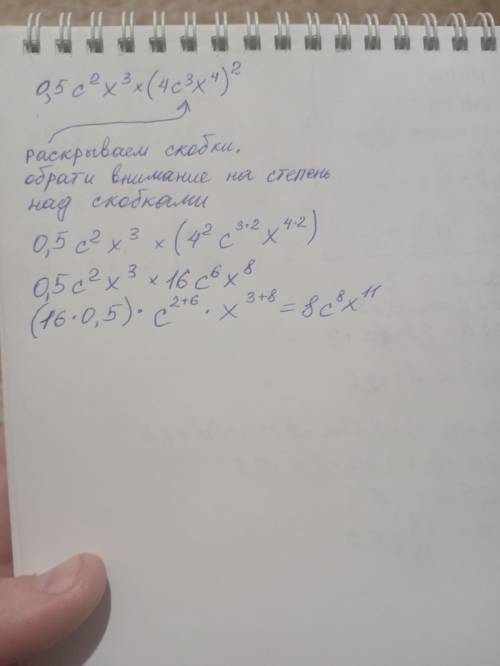 0,5c²x³×(4c³x⁴)²
раскрываем скобки,
обрати внимание на степень
над скобками
0,5c²x³ × (4²c³˙²x⁴˙²)
0,5c²x³ × 16c⁶x⁸
(16·0,5)·c²⁺⁶·x³⁺⁸=8c⁸x¹¹